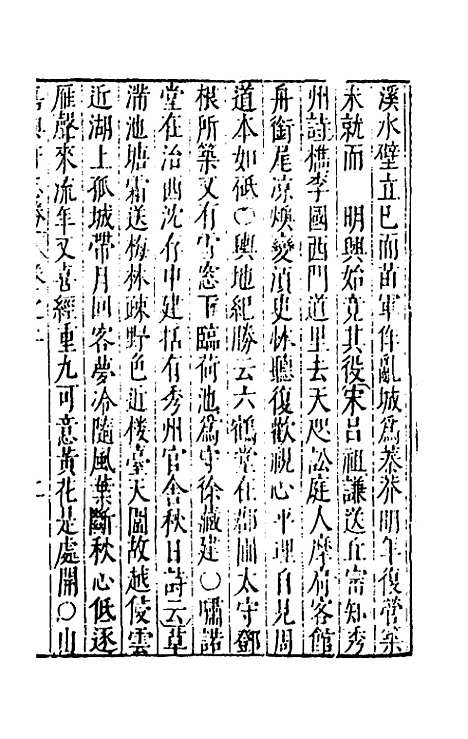 溪水壁立已而苗軍作亂城爲蓁莽明年復營築
未就而　明興始竟其役宋呂祖謙送丘宗卿知秀
州詩檇李國西門道里去天咫訟庭人摩肩客館
舟銜尾涼燠變須史怵聽復歡視心平理自見周
道本如砥○輿地紀勝云六鶴堂在郡圃太守鄧
根所築又有雪窓下臨荷池爲守徐蕆建○嘯諾
堂在治西沈存中建括有秀州官舍秋日詩云草
滿池塘霜送梅林疎野色近樓臺天圍故越侵雲
近湖上孤城帶月回客夢冷隨風葉斷秋心低逐
雁聲來流年又喜經重九可意黃花是處開○山